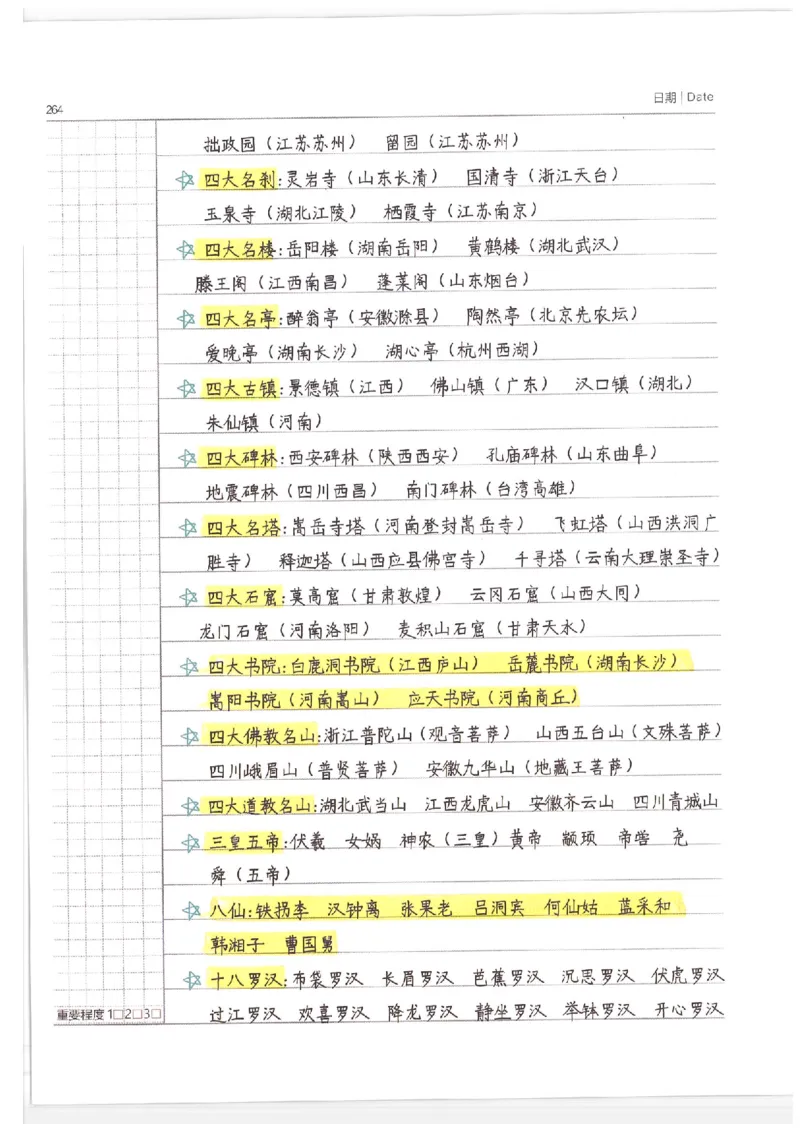 264
日期 | Date
拙政园（江苏苏州） 留园（江苏苏州）
四大名刹:灵岩寺（山东长清） 国清寺（浙江天台）
玉泉寺（湖北江陵） 栖霞寺（江苏南京）
四大名楼:岳阳楼（湖南岳阳） 黄鹤楼（湖北武汉）
滕王阁（江西南昌） 蓬莱阁（山东烟台）
四大名亭:醉翁亭（安徽滁县） 陶然亭（北京先农坛）
爱晚亭（湖南长沙） 湖心亭（杭州西湖）
四大古镇:景德镇（江西） 佛山镇（广东） 汉口镇（湖北）
朱仙镇（河南）
四大碑林:西安碑林（陕西西安） 孔庙碑林（山东曲阜）
地震碑林（四川西昌） 南门碑林（台湾高雄）
四大名塔:嵩岳寺塔（河南登封嵩岳寺） 飞虹塔（山西洪洞广
胜寺） 释迦塔（山西应县佛宫寺） 千寻塔（云南大理崇圣寺）
四大石窟:莫高窟（甘肃敦煌） 云冈石窟（山西大同）
龙门石窟（河南洛阳） 麦积山石窟（甘肃天水）
四大书院:白鹿洞书院（江西庐山） 岳麓书院（湖南长沙）
嵩阳书院（河南嵩山） 应天书院（河南商丘）
四大佛教名山:浙江普陀山（观音菩萨） 山西五台山（文殊菩萨）
四川峨眉山（普贤菩萨） 安徽九华山（地藏王菩萨）
四大道教名山:湖北武当山 江西龙虎山 安徽齐云山 四川青城山
三皇五帝:伏羲 女娲 神农（三皇）黄帝 颛顼 帝喾 尧
舜（五帝）
八仙:铁拐李 汉钟离 张果老 吕洞宾 何仙姑 蓝采和
韩湘子 曹国舅
十八罗汉:布袋罗汉 长眉罗汉 芭蕉罗汉 沉思罗汉 伏虎罗汉
过江罗汉 欢喜罗汉 降龙罗汉 静坐罗汉 举钵罗汉 开心罗汉
重要程度 1□2□3□